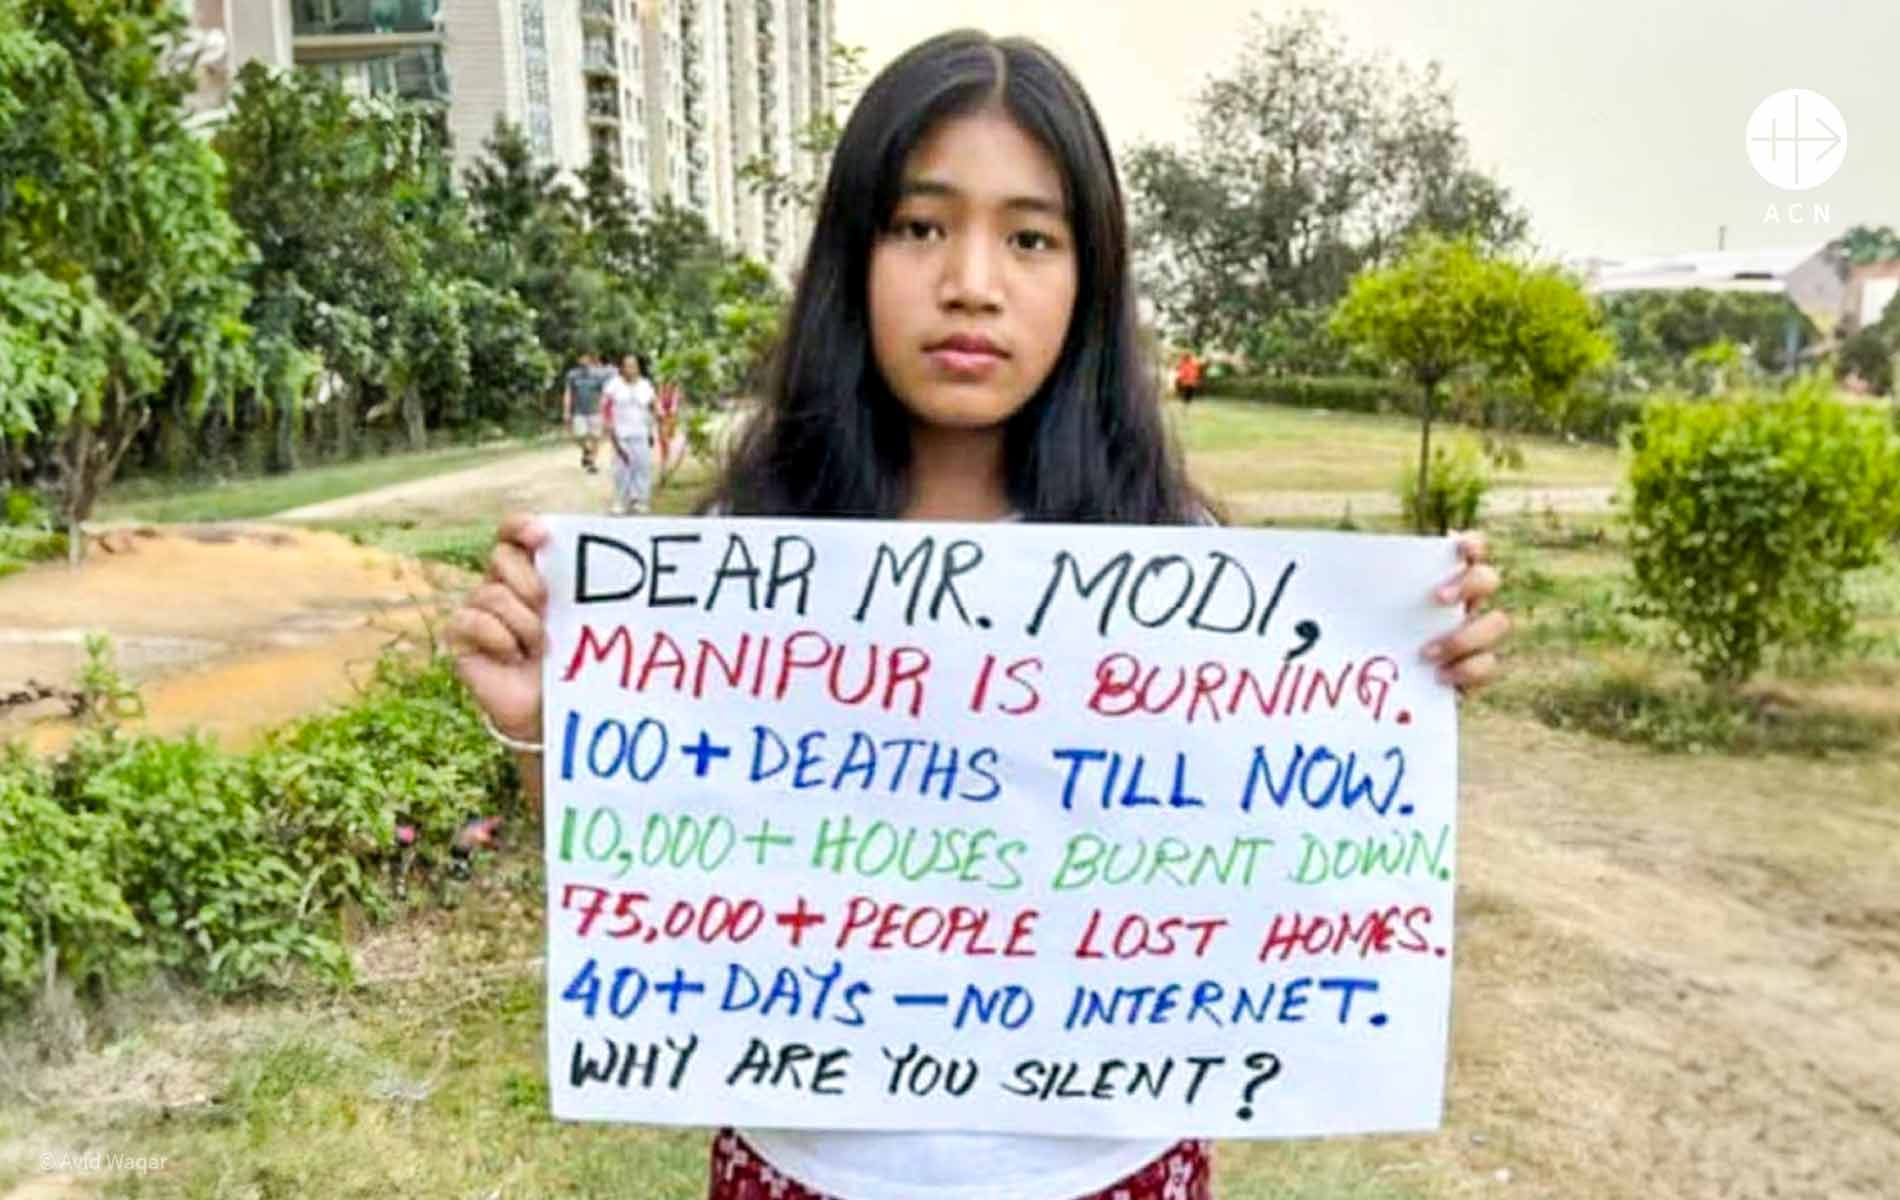 ACN
DEAR MR. MODI,
MANIPUR IS BURNING.
100+ DEATHS TILL NOW.
10,000+ HOUSES BURNT DOWN.
75,000+ PEOPLE LOST HOMES.
40+ DAYS – NO INTERNET.
WHY ARE YOU SILENT?
© Avid Waqar